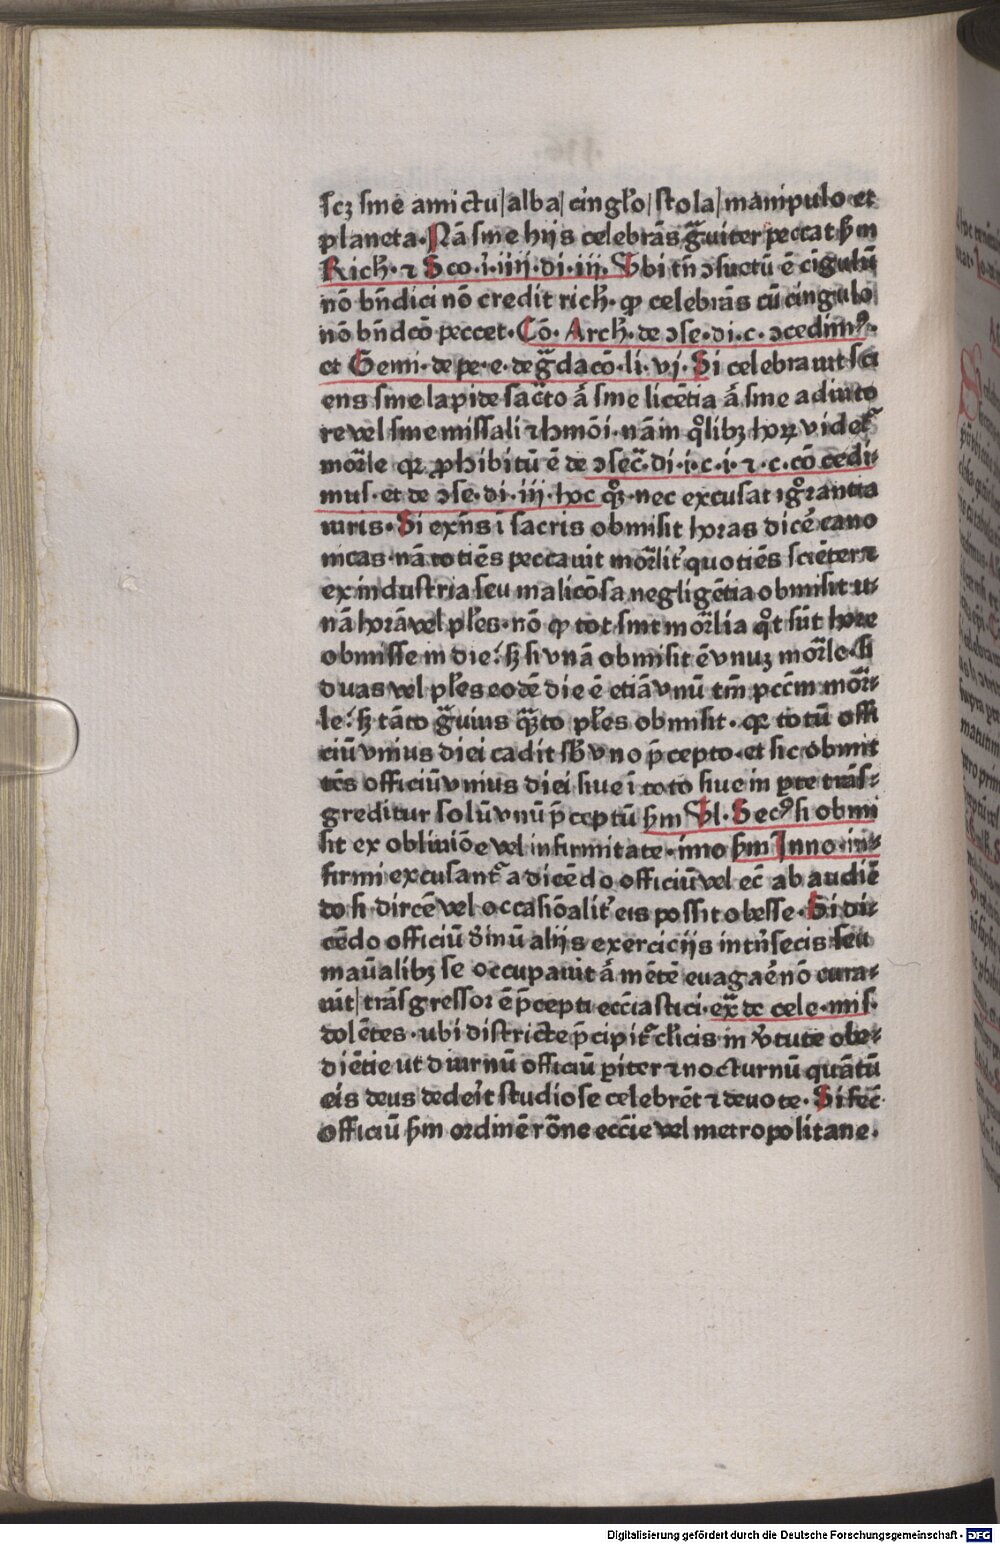 ſcʒ ſine amictu|alba|cingl̕o|ſtola|manipulo et
planeta·Nā ſine hijs celebrās gͣuiter peccat ẜm
Rich̕·⁊ Sco·i·iiij·di·iij· Vbi tn̄ ↄſuetū ē cīgulū
nō bn̄dici nō credit rich̕· ꝙ celebrās cū cingulo
nō bn̄dcō peccet·Cō· Arch̕·de ↄſe·di·c·ↄcedimꝰ·
et Gemi·de pe·e·de gͣdacō·li·vj·Si celebrauit ſci
ens ſine lapide ſac̄to ā ſine licētia ā ſine adiuto
re vel ſine miſſali ⁊ hmōi·nām qͦlibʒ hoꝝ videt᷑
mor̄le qꝛ ꝓhibitū ē de ↄſec̄·di·i·c·i·⁊·c·cōcedi-
mus·et de ↄſe·di·iij·hoc qͦꝫ·nec excuſat igͦrantia
iuris·Si exn̄s ī ſacris obmiſit horas dicē cano
nicas·nā totiēs peccauit mor̄lit᷑ quotiēs ſciēter ⁊
ex induſtria ſeu malicōſa negligētia obmiſit u-
nā horā vel pl̕es·nō ꝙ tot ſint mor̄lia qͦt ſūt hore
obmiſſe in die: ſʒ ſi vnā obmiſit ē vnuʒ mor̄le·ſi
duas vel pl̕es eodē die ē etiā vnū tm̄ pccm̄ mor̄-
le: ſʒ tāto gͣuius qͣto pl̕es obmiſit· qꝛ totū offi
ciū vnius diei cadit ſb̕ vno p̄cepto·et ſic obmit
tēs officiū vnius diei ſiue ī toto ſiue in ꝑte trāſ-
greditur ſolū vnū p̄ceptū ẜm Vl·Secꝰ ſi obmi
ſit ex obliuiōe vel infirmitate·imo ẜm Inno·in-
firmi excuſant᷑ a dicēdo officiū vel ec̄ ab audiē
do ſi dircē vel occaſiōalit᷑ eis poſſit obeſſe·Si di-
cēdo officiū diuinū alijs exercicijs intn̄ſecis ſeu
manūalibʒ ſe occupauit ā mētē euagaē nō cura-
uit|trāſgreſſor ē p̄cepti ecc̄iaſtici·exͣ de cele·miſ·
dolētes·ubi diſtricte p̄cipit᷑ cl̕icis in v̓tute obe-
diētie ut diurnū officiū ꝑiter ⁊ nocturnū quātū
eis deus dedeīt ſtudioſe celebrēt ⁊ deuote·Si fec̄
officiū ẜm ordinē rōne ecc̄ie vel metropolitane·
Digitalisierung gefördert durch die Deutsche Forschungsgemeinschaft · DFG